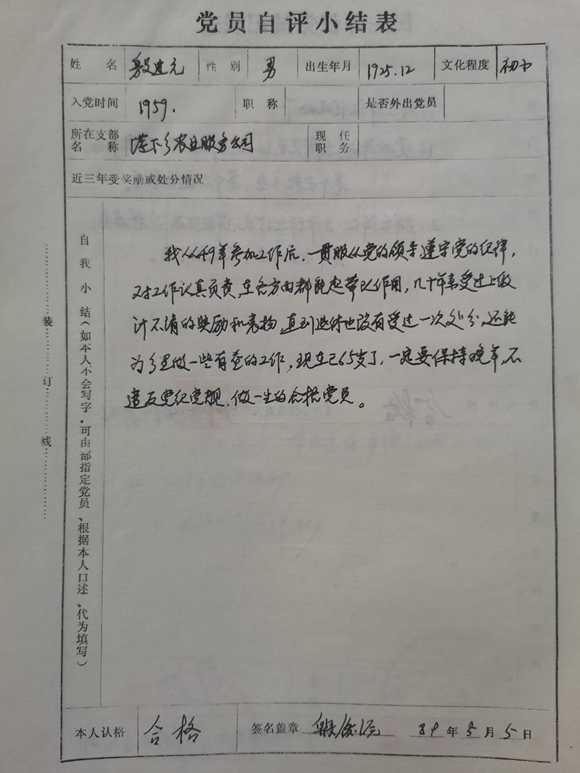 党员自评小结表
姓 名 性 别 男 出生年月 1925.12 文化程度 初中
入党时间 1959. 职 称 是否外出党员
所在支部名称 下乡农业服务公司 现任职务
近三年受奖励或处分情况
自我小结（如本人不会写字，可由部指定党员，根据本人口述，代为填写）
我从49年参加工作后，一贯服从党的领导遵守党的纪律，
对工作认真负责，在各方面都能起带头作用，几十年来受过上级
计不清的奖励和表扬，直到退休也没有受过一次处分，还能
为乡里做一些有益的工作，现在已65岁了，一定要保持晚年，不
违反党纪党规，做一生的合格党员。
本人认格 合格 签名盖章 89年5月5日
装 订 线